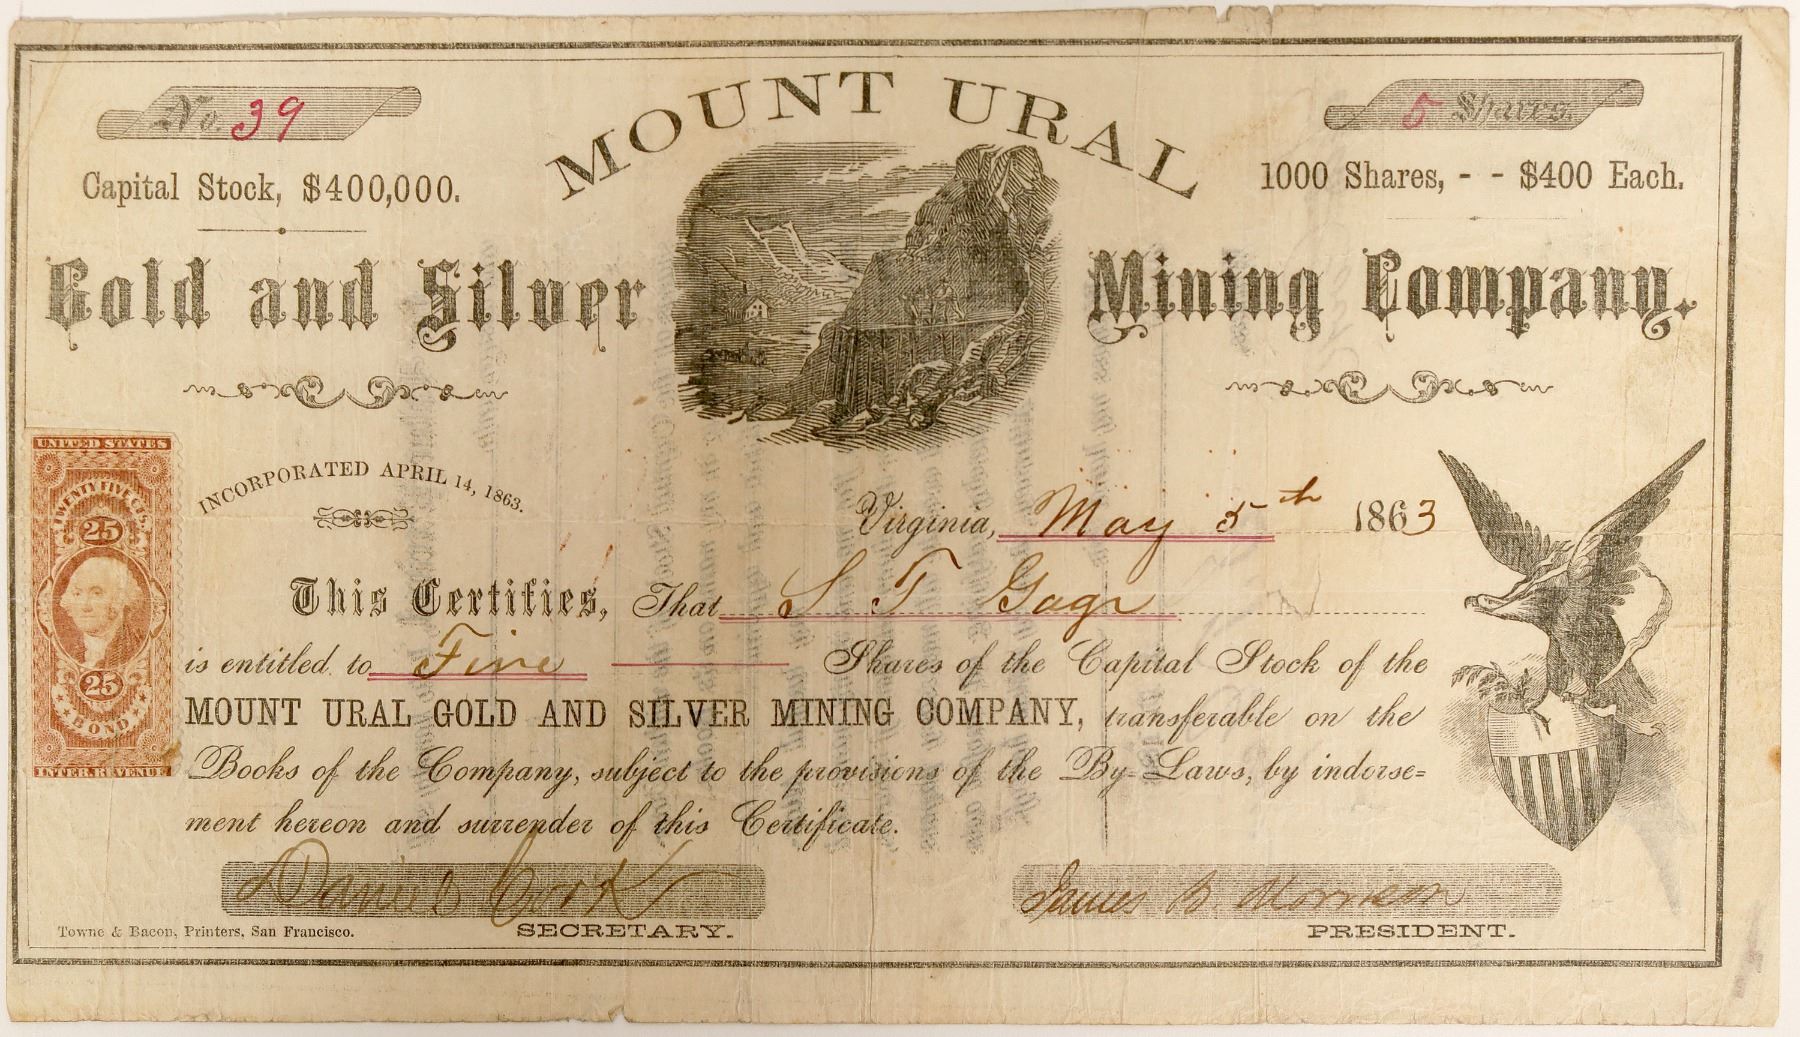 MOUNT URAL
No. 39
5 Shares.
Capital Stock, $400,000.
1000 Shares, - - $400 Each.
Gold and Silver Mining Company.
UNITED STATES
TWENTY FIVE CTS.
25
25
BOND
INTER. REVENUE
INCORPORATED APRIL 14, 1863.
Virginia, May 5th 1863
This Certifies, That S T Gage
is entitled to Five Shares of the Capital Stock of the
MOUNT URAL GOLD AND SILVER MINING COMPANY, transferable on the
Books of the Company, subject to the provisions of the By-Laws, by indorse=
ment hereon and surrender of this Certificate.
Daniel Cook
James B. Morrison
SECRETARY.
PRESIDENT.
Towne & Bacon, Printers, San Francisco.